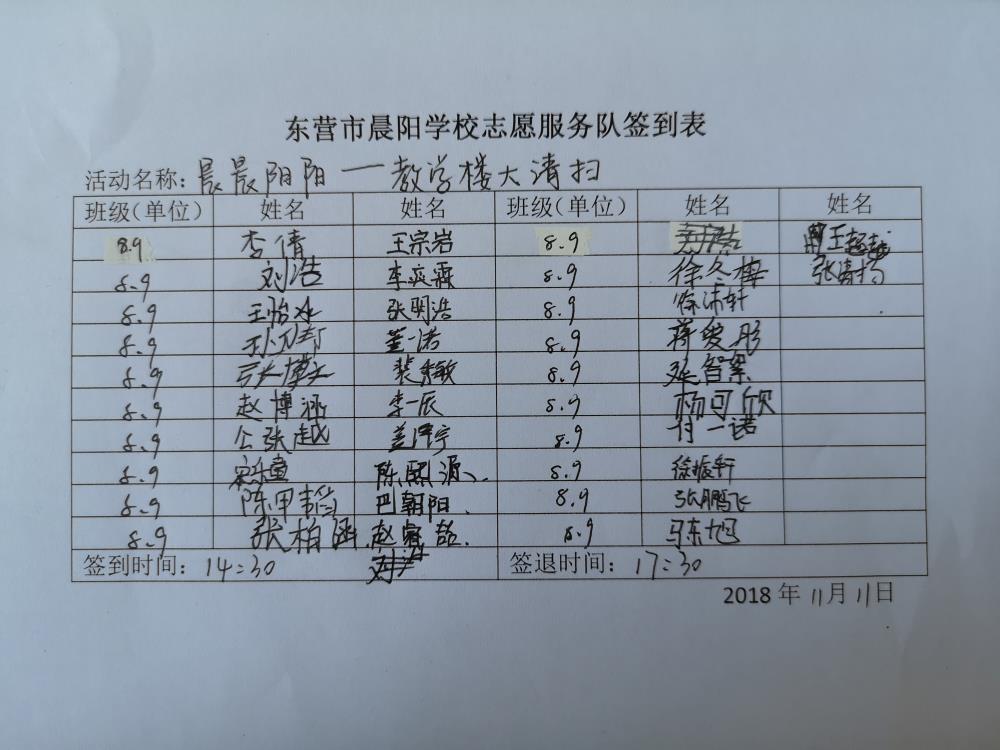 东营市晨阳学校志愿服务队签到表
活动名称：晨晨阳阳——教学楼大清扫
班级（单位） 姓名 姓名 班级（单位） 姓名 姓名
8.9 李倩 王宗岩 8.9 王超越
8.9 刘浩 李奕霖 8.9 徐冬梅 张清扬
8.9 王怡冰 张明浩 8.9 徐沛轩
8.9 董一诺 8.9 蒋雯彤
8.9 张博文 裴秀敏 8.9 张智累
8.9 赵博涵 李一辰 8.9 杨可欣
8.9 公张越 盖泽宇 8.9 付一诺
8.9 宋东童 陈熙源 8.9 徐振轩
8.9 陈甲韵 巴朝阳 8.9 张鹏飞
8.9 张柏函 赵睿喆 8.9 马东旭
签到时间：14:30 签退时间：17:30
2018年11月11日